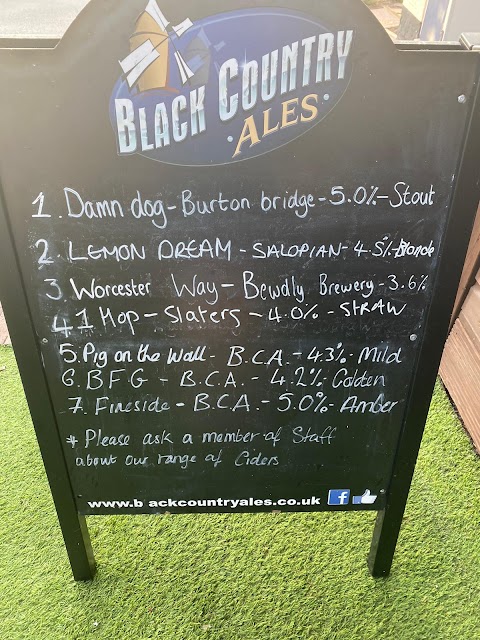 BLACK COUNTRY
· ALES ·
1. Damn dog - Burton bridge - 5.0% - Stout
2. LEMON DREAM - SALOPIAN - 4.5% - Blonde
3. Worcester Way - Bewdly Brewery - 3.6%
4. 1 Hop - Slaters - 4.0% - STRAW
5. Pig on the Wall - B.C.A. - 4.3% - Mild
6. B F G - B.C.A. - 4.2% - Golden
7. Fireside - B.C.A. - 5.0% - Amber
* Please ask a member of Staff
about our range of Ciders
www.b ackcountryales.co.uk f